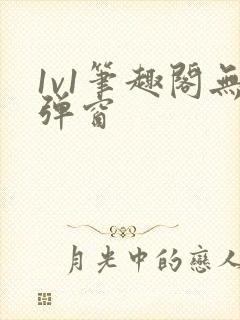 1v1筆趣閣無
弹窗
月光中的戀人